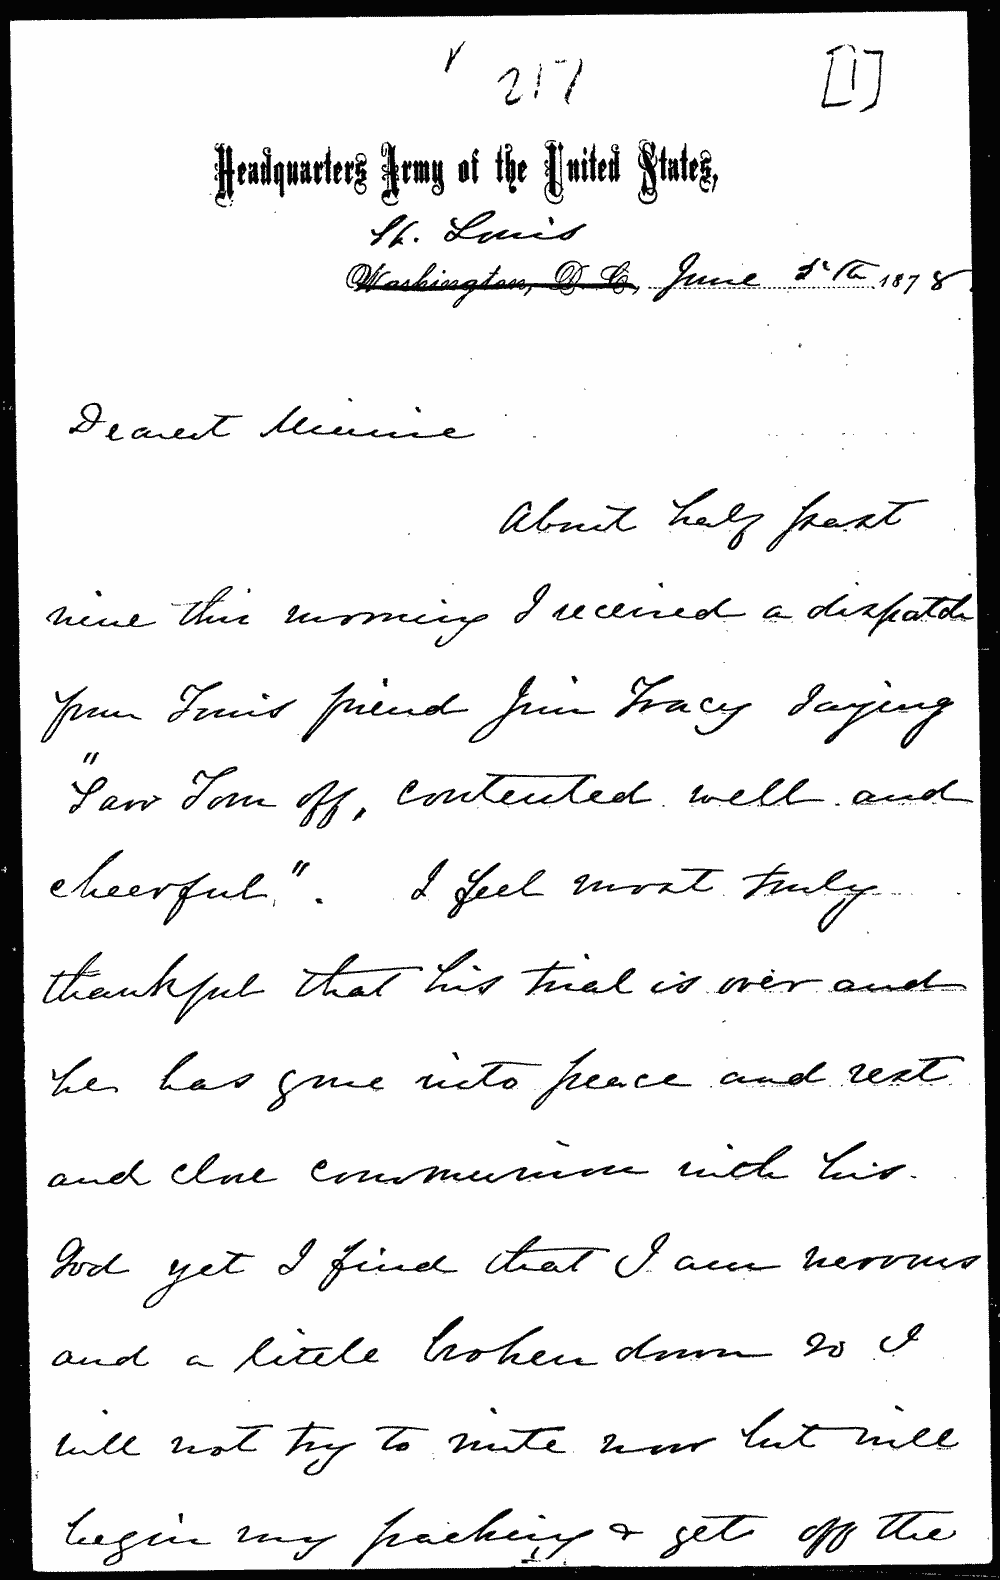 217
[1]
Headquarters Army of the United States,
St. Louis
Washington, D. C., June 5th 1878
Dearest Minnie
About half past
nine this morning I received a dispatch
from Tom's friend Jim Tracy saying
"Saw Tom off, contented well and
cheerful". I feel most truly
thankful that his trial is over and
he has gone into peace and rest
and close communion with his
God yet I find that I am nervous
and a little broken down so I
will not try to write now but will
begin my packing & get off the